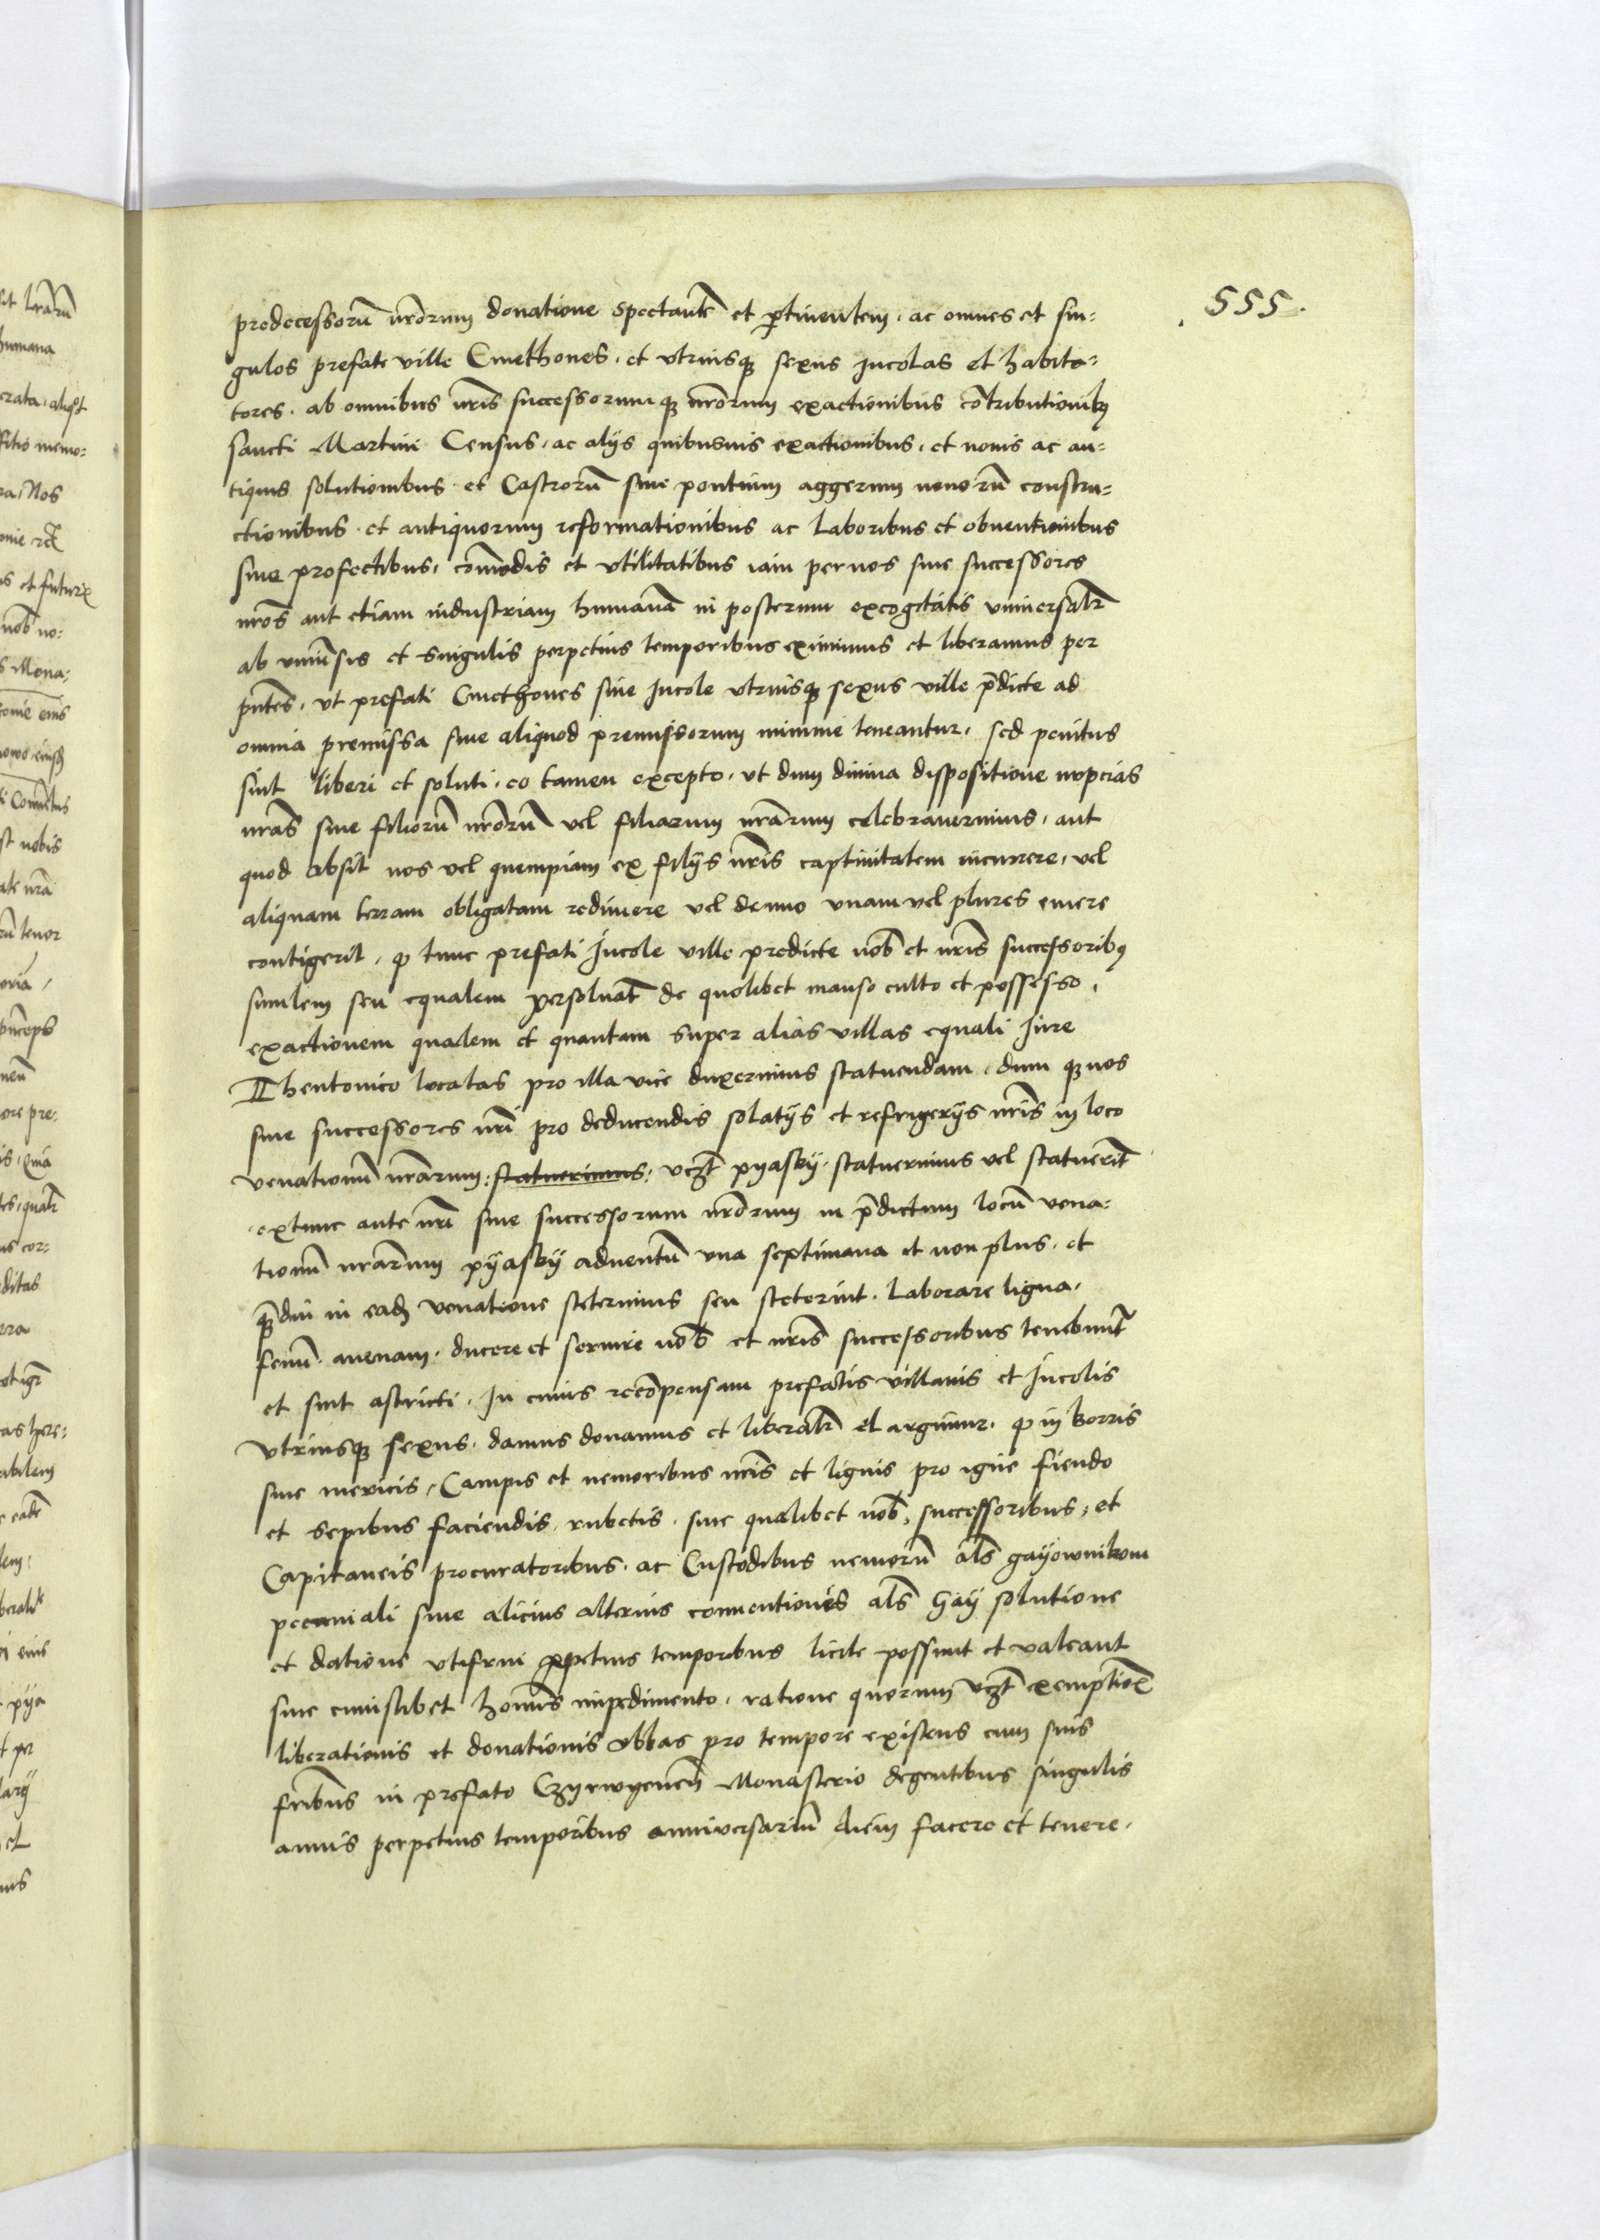 555.
predecessorū nrōrum donatione spectantē et ptinentem. ac omnes et sin-
gulos prefate ville Cmethones. et vtriusqȝ sexus Incolas et habita-
tores. ab omnibus nrīs successorumqȝ nrōrum exactionibus cōtributionibȝ
sancti Martini Census. ac alijs quibusuis exactionibus. et nouis ac an-
tiquis solutionibus et Castrorū siue pontium aggerum nouorū constru-
ctionibus et antiquorum reformationibus ac laboribus et obuentionibus
siue profectibus, cōmodis et vtilitatibus iam per nos siue successores
nrōs aut etiam industriam humanā in posterum excogitatis vniuersalr
ab vniūsis et singulis perpetuis temporibus eximimus et liberamus per
pn̄tes, vt prefati Cmethones siue Incole vtriusqȝ sexus ville p̄dicte ad
omnia premissa siue aliquod premissorum minime teneantur, sed penitus
sint liberi et soluti, eo tamen excepto, vt dum diuina dispositione nupcias
nrās siue filiorū nrōrū vel filiarum nrārum celebrauerimus, aut
quod absit nos vel quempiam ex filijs nrīs captiuitatem incurrere, vel
aliquam terram obligatam redimere vel denuo vnam vel plures emere
contigerit, ꝙ tunc prefati Incole ville predicte nob̄ et nrīs successoribȝ
similem seu equalem persoluāt de quolibet manso culto et possesso,
exactionem qualem et quantam super alias villas equali Iure
Theutonico locatas pro illa vice duxerimus statuendam, dumqȝ nos
siue successores nrī pro deducendis solatijs et refrigerijs nrīs in loco
venationū nrārum: statuerimus: vcȝt pyasky. statuerimus vel statuerīt
extunc ante nrī siue successorum nrōrum in p̄dictum locū vena-
tionū nrārum pyasky aduentū vna septimana et non plus, et
qȝdiu in eadȝ venatione steterimus seu steterint. laborare ligna,
fenū. auenam. ducere et seruire nob̄ et nrīs successoribus tenebunt
et sint astricti. In cuius recōpensam prefatis villanis et Incolis
vtriusqȝ sexus. damus donamus et liberalr elargimur. ꝙ in borris
siue mericis, Campis et nemoribus nrīs et lignis pro igne fiendo
et sepibus faciendis, rubetis. siue qualibet nob̄, successoribus, et
Capitaneis procuratoribus. ac Custodibus nemorū als̄ gayownikom
pecuniali siue alicius alterius conuentionis als̄ Gay solutione
et datione vtifrui ꝑpetuis temporibus licite possunt et valeant
siue cuiuslibet homīs impedimento, ratione quorum vcȝt exemptiōs
liberationis et donationis Abbas pro tempore existens cum suis
frībus in prefato Czyrwyenen̄ Monasterio degentibus singulis
annis perpetuis temporibus anniuersariū diem facere et tenere.